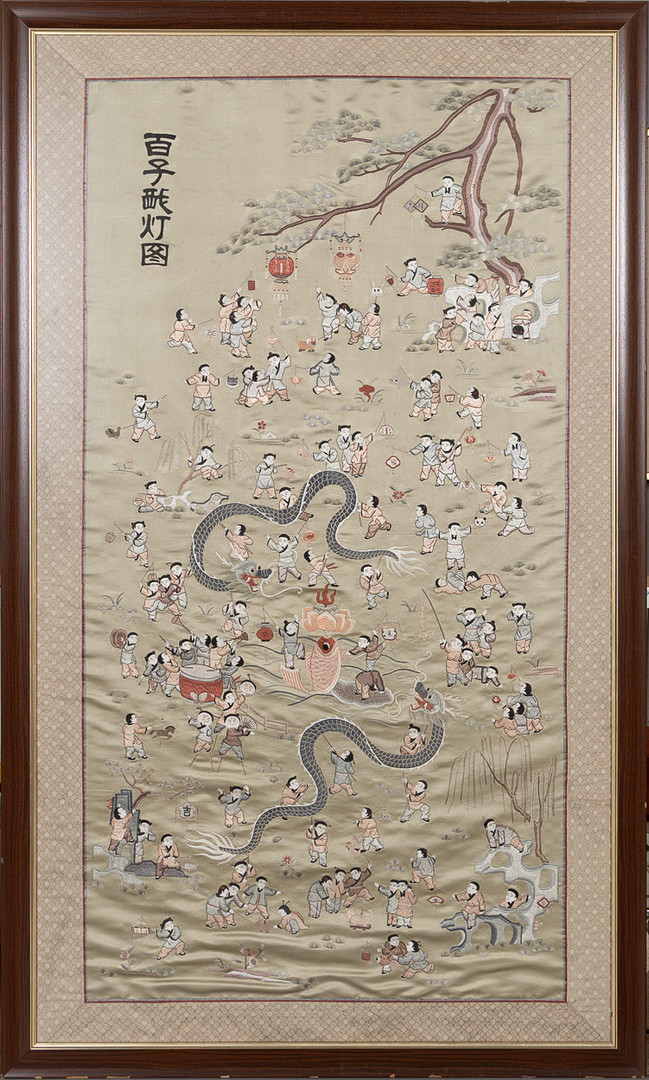 百子戏灯图
吉